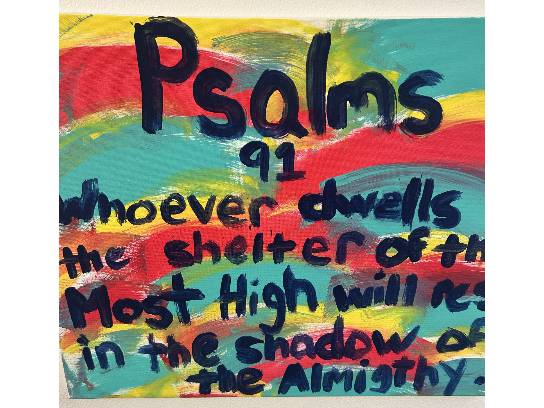 Psalms
91
Whoever dwells
the shelter of th
Most High will res
in the shadow of
the Almigthy.